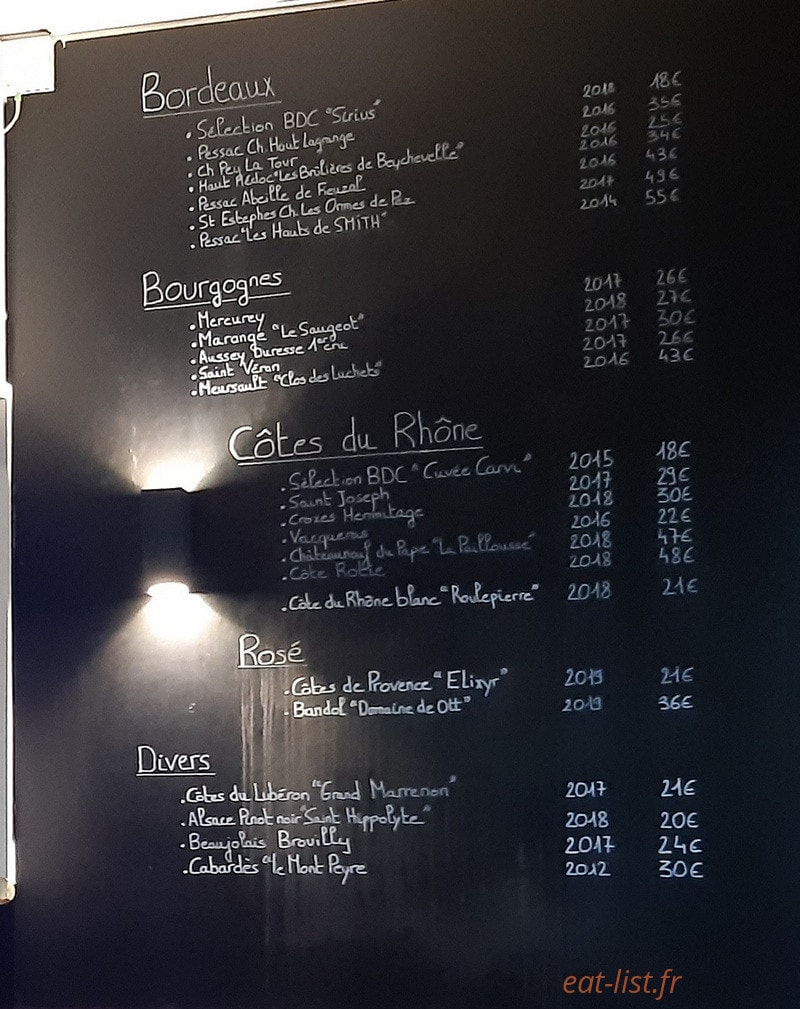 Bordeaux
. Sélection BDC "Sirius" 2018 18€
. Pessac Ch. Haut Lagrange 2016 35€
. Ch Pey La Tour 2016 25€
. Haut Médoc "Les Brûlières de Beychevelle" 2016 34€
. Pessac Abeille de Fieuzal 2016 43€
. St Estephes Ch. Les Ormes de Pez 2017 49€
. Pessac "Les Hauts de SMITH" 2014 55€
Bourgognes
. Mercurey 2017 26€
. Marange "Le Saugeot" 2018 27€
. Aussey Duresse 1er cru 2017 30€
. Saint Véran 2017 26€
. Meursault "Clos des Luchets" 2016 43€
Côtes du Rhône
. Sélection BDC "Cuvée Carvi" 2015 18€
. Saint Joseph 2017 29€
. Crozes Hermitage 2018 30€
. Vacqueras 2016 22€
. Châteauneuf du Pape "La Pailloussé" 2018 47€
. Côte Rotie 2018 48€
. Côte du Rhône blanc "Roulepierre" 2018 21€
Rosé
. Côtes de Provence "Elixyr" 2019 21€
. Bandol "Domaine de Ott" 2019 36€
Divers
. Côtes du Lubéron "Grand Marrenon" 2017 21€
. Alsace Pinot noir "Saint Hippolyte" 2018 20€
. Beaujolais Brouilly 2017 24€
. Cabardès "le Mont Peyre 2012 30€
eat-list.fr